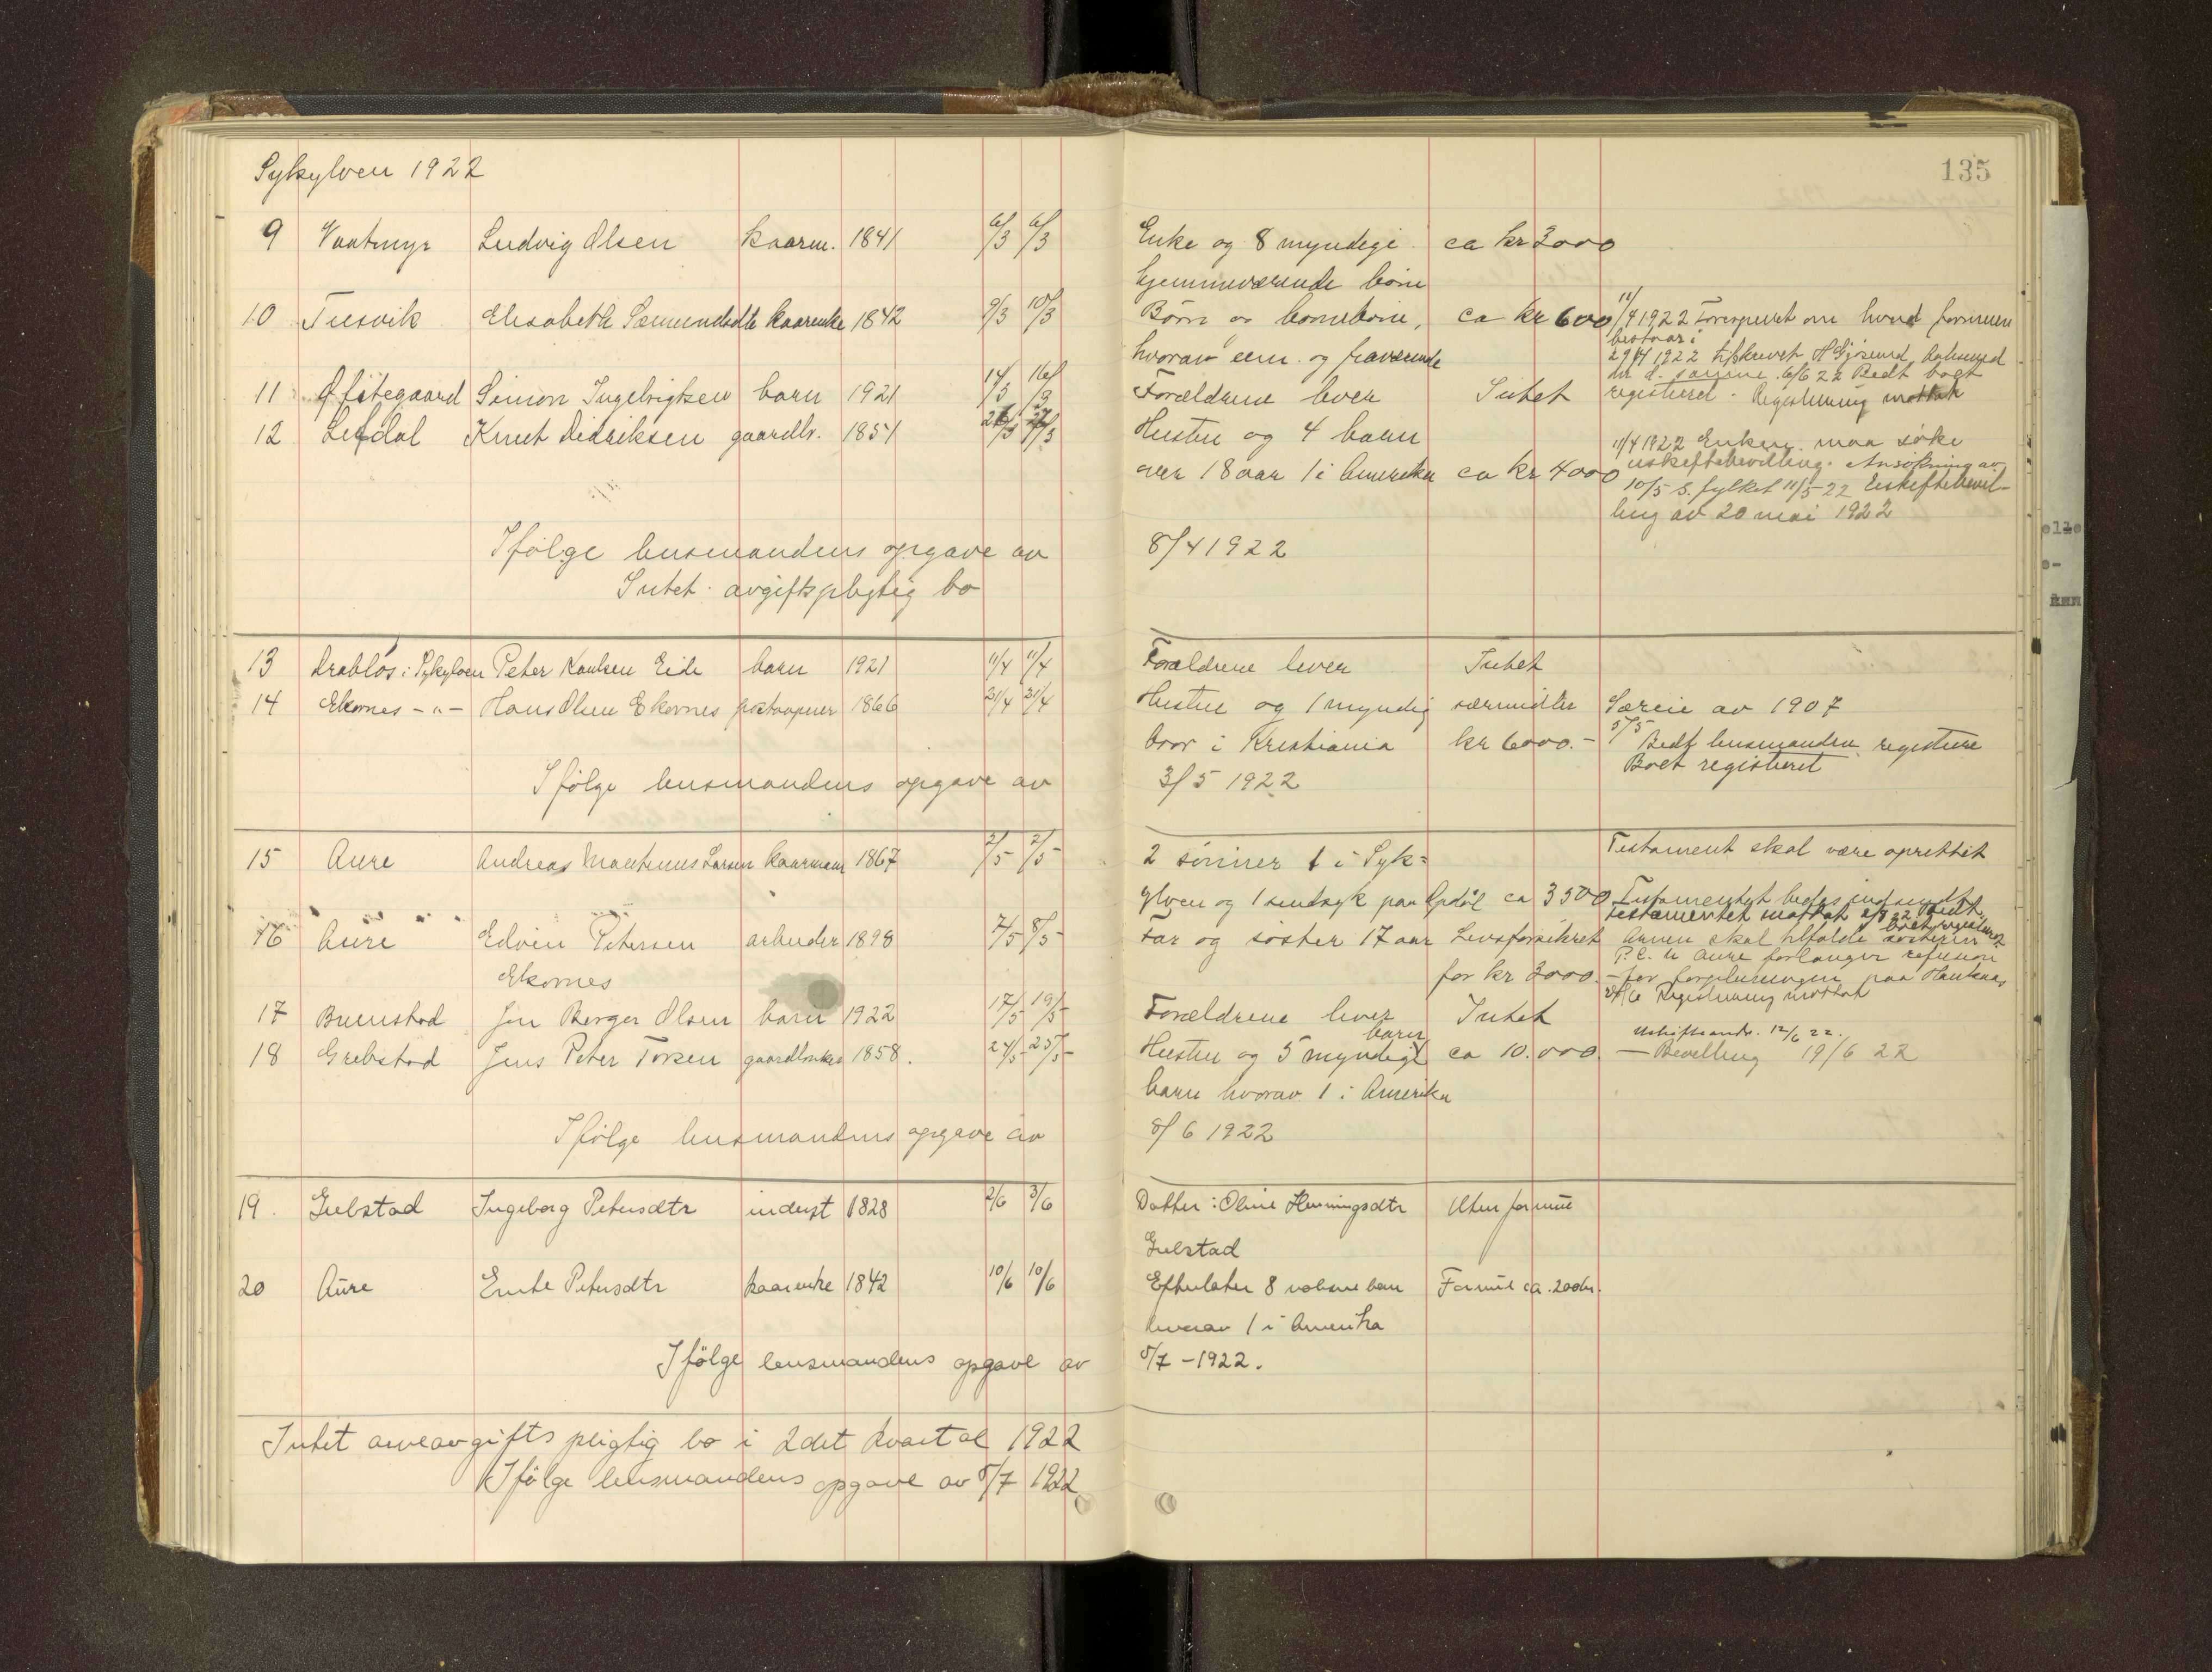 Sykylven 1922
135
9 Vaatmyr Ludvig Olsen kaarm. 1841 6/3 6/3 Enke og 8 myndige ca kr 3000
hjemmeværende børn
10 Tusvik Elisabeth Sæmundsdtr kaarenke 1842 9/3 10/3 Børn og barnebørn, ca kr 600 11/4 1922 Forespurt om hvad formuen
bestaar i
hvorav een og fraværende 29/4 1922 tilskrevet
d. samme 6/6 22 Bedt boet
11 Simon Ingebrigtsen barn 1921 14/3 16/3 Forældrene lever Intet registreret. Registrering mottat
12 Lefdal Knut Didriksen gaardbr. 1851 Hustru og 4 barn
11/4 1922 Enken maa søke
over 18 aar 1 i Amerika ca kr 4000 uskiftebevilling. Ansøkning av
10/5 s. fylket 11/5-22 Uskiftebevil-
ling av 20 mai 1922
Ifølge lensmandens opgave av 8/4 1922
Intet avgiftspligtig bo
13 Drabløs i Sykylven Peter Knutsen Eide barn 1921 11/4 11/4 Forældrene lever Intet
14 Ekornes -"- Hans Olsen Ekornes postaapner 1866 21/4 21/4 Hustru og 1 myndig særmidler Særeie av 1907
bror i Kristiania kr 6000.- 5/5 Bedt lensmanden registrere
Boet registreret
Ifølge lensmandens opgave av 3/5 1922
15 Aure Andreas Martinus Larsen kaarmann 1867 2/5 2/5 2 sønner 1 i Syk= Testament skal være oprettet
ylven og 1 sindsyk paa Opdøl ca 3500 Testamentet bedes indsendt
Testamentet mottat Bedt
boet registreret
16 Aure Edvin Petersen arbeider 1898 7/5 8/5 Far og søster 17 aar Livsforsikret Arven skal tilfalde søsteren
P.E. Aure forlanger refusion
Ekornes for kr 3000.- for forpleiningen paa Haukaas
Registrering mottat
17 Buenstad Jon Berger Olsen barn 1922 17/5 19/5 Forældrene lever Intet
barn Uskifteandr. 12/6 22.
18 Grebstad Jens Peter Torsen gaardbruker 1858. 24/5 25/5 Hustru og 5 myndige ca 10.000. — Bevilling 19/6 22
barn hvorav 1 i Amerika
Ifølge lensmandens opgave av 8/6 1922
19. Gulstad Ingeborg Petersdtr inderst 1828 2/6 3/6 Datter: Oline Henningsdtr Uten formue
Gulstad
20 Aure Emte Petersdtr kaarenke 1842 10/6 10/6 Efterlater 8 voksne barn Formue ca. 200 kr.
hvorav 1 i Amerika
Ifølge lensmandens opgave av 5/7 - 1922.
Intet arveavgifts pligtig bo i 2det kvartal 1922
Ifølge lensmandens opgave av 5/7 1922